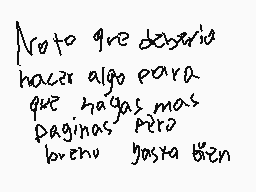 Noto que deberia
hacer algo para
que hagas mas
paginas pero
bueno gasta bien